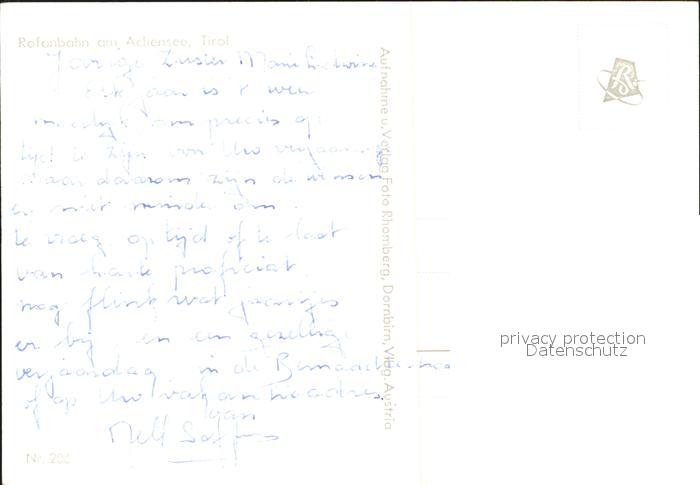 Rofanbahn am Achensee, Tirol
Jarige Zuster Marie
Elk jaar is 't weer
moeilijk om precies op
tijd te zijn voor Uw
Maar daarom zijn de wensen
er niet minder om.
te vroeg, op tijd of te laat
van harte proficiat,
nog flink wat jaartjes
er bij en een gezellige
verjaardag in de
of op Uw vakantieadres.
van
Nr. 206
Aufnahme u. Verlag Foto Rhomberg, Dornbirn, Vlbg. Austria
privacy protection
Datenschutz